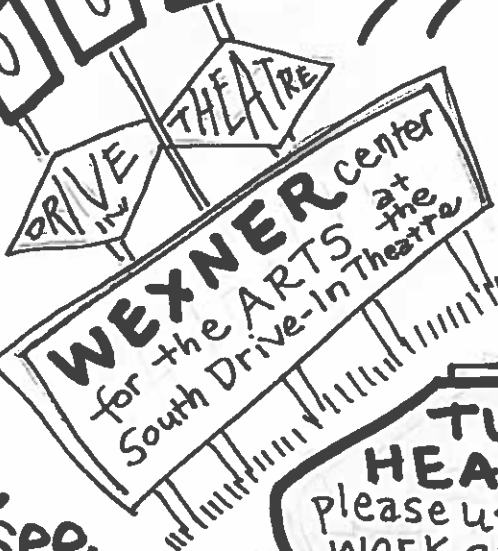 DRIVE
IN
THEATRE
WEXNER center
for the ARTS at the
South Drive-In Theatre
please u